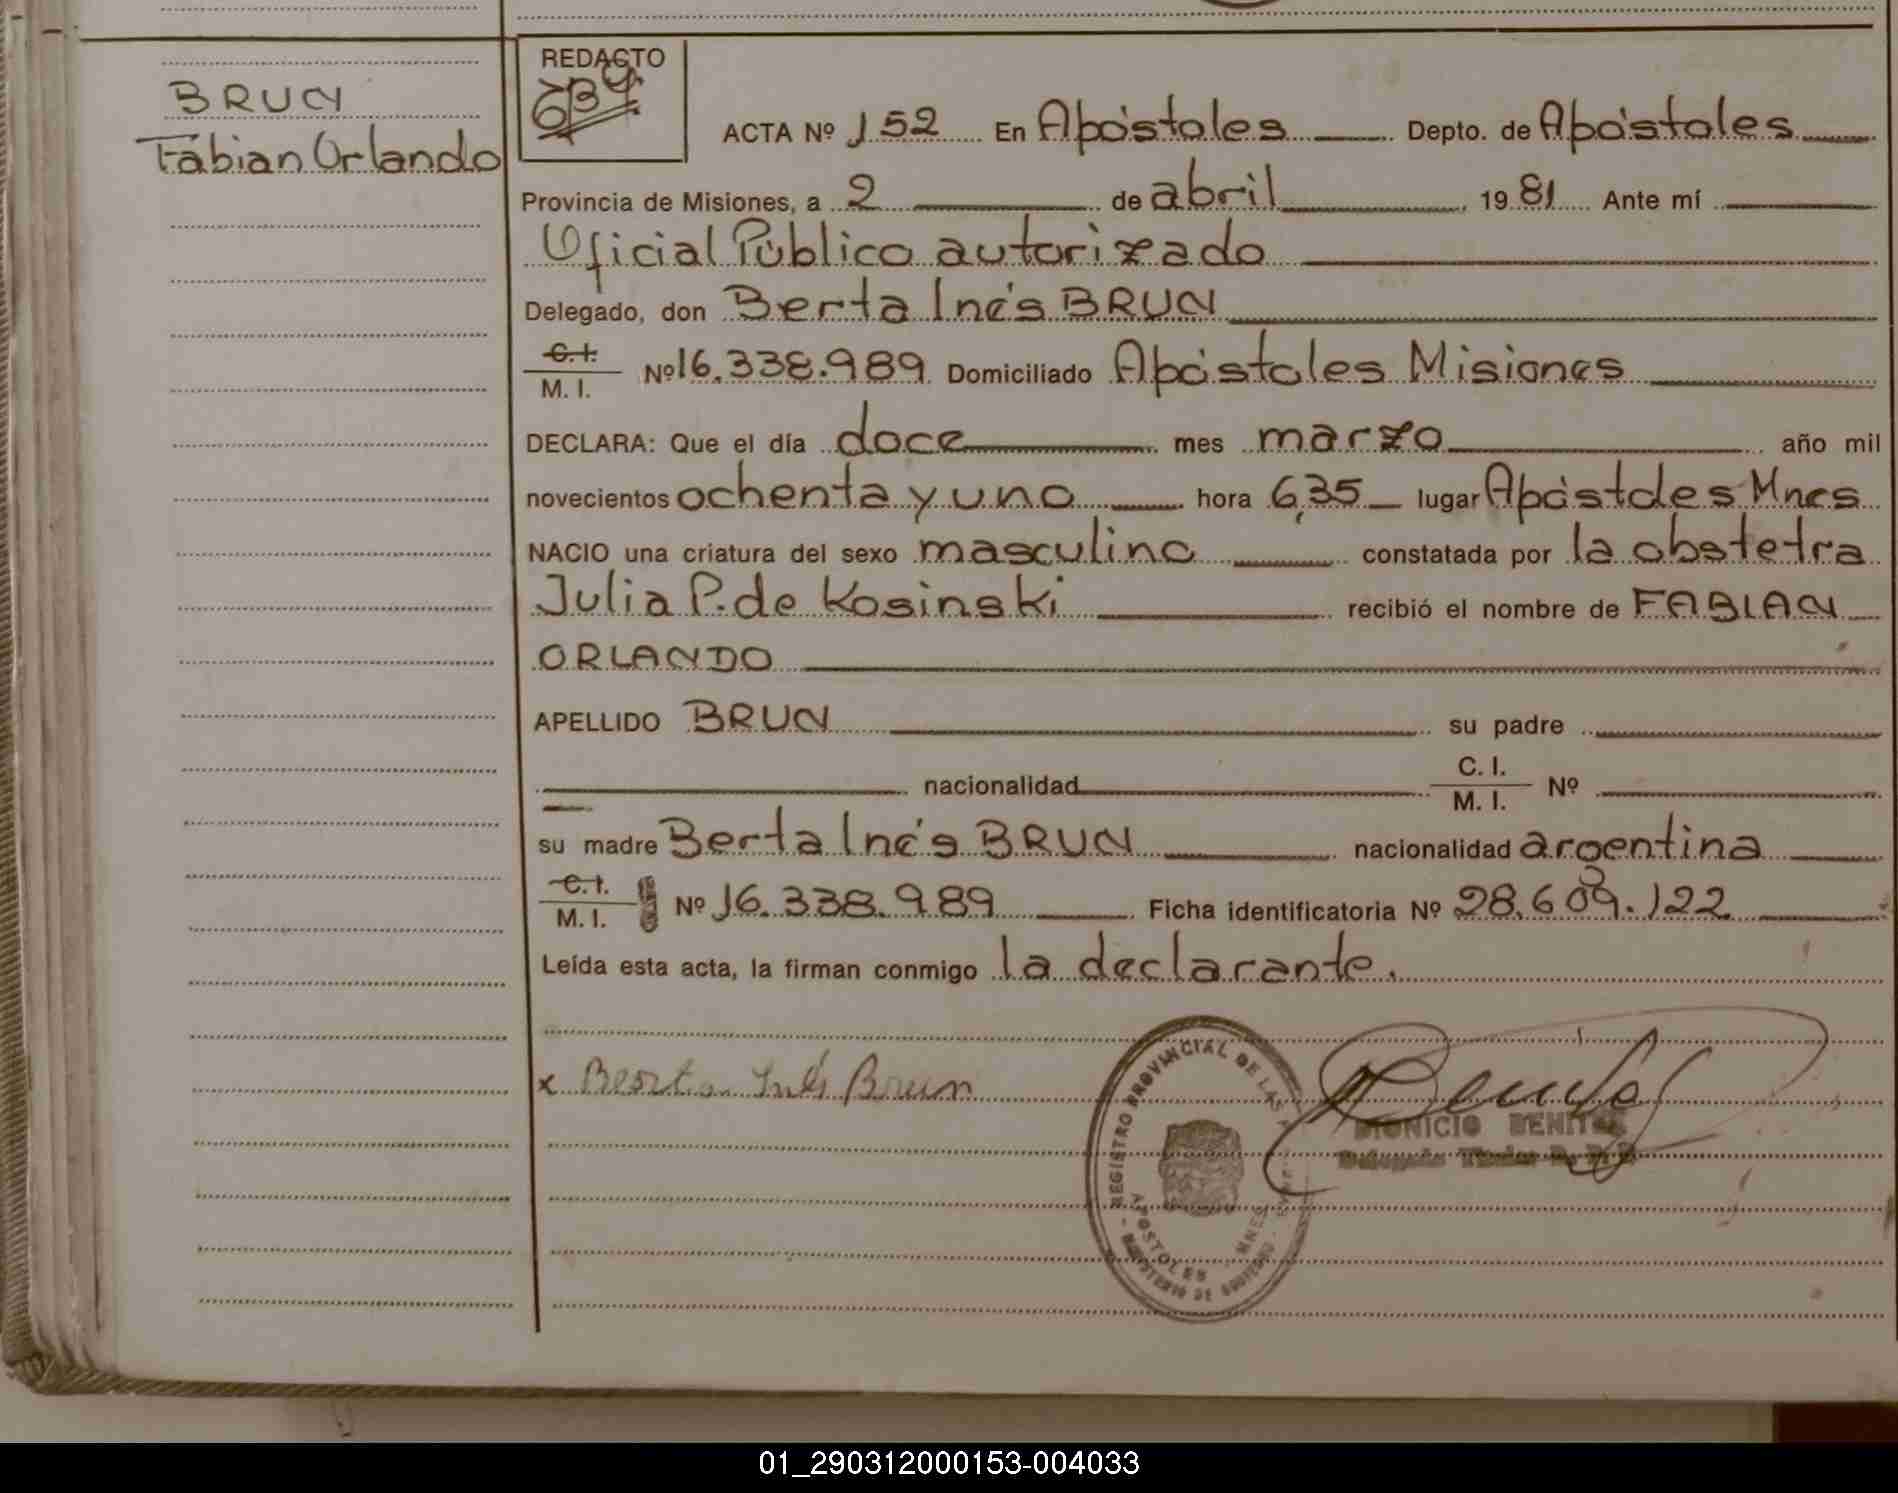 BRUN
Fabian Orlando
REDACTO
639
ACTA Nº 152 En Apóstoles Depto. de Apóstoles
Provincia de Misiones, a 2 de abril 1981 Ante mí
Oficial Público autorizado
Delegado, don Berta Inés BRUN
C.I. M. I. Nº 16.338.989 Domiciliado Apóstoles Misiones
DECLARA: Que el día doce mes marzo año mil
novecientos ochenta y uno hora 6,35 lugar Apóstoles Mnes
NACIO una criatura del sexo masculino constatada por la obstetra
Julia P. de Kosinski recibió el nombre de FABIAN
ORLANDO
APELLIDO BRUN su padre
nacionalidad C. I. M. I. Nº
su madre Berta Inés BRUN nacionalidad argentina
C.I. M. I. Nº 16.338.989 Ficha identificatoria Nº 28.609.122
Leída esta acta, la firman conmigo la declarante.
x Berta Inés Brun
REGISTRO PROVINCIAL DE LAS
APOSTOLES MNES
MINISTERIO DE GOBIERNO
DIONICIO BENITEZ
Delegado Titular
01_290312000153-004033